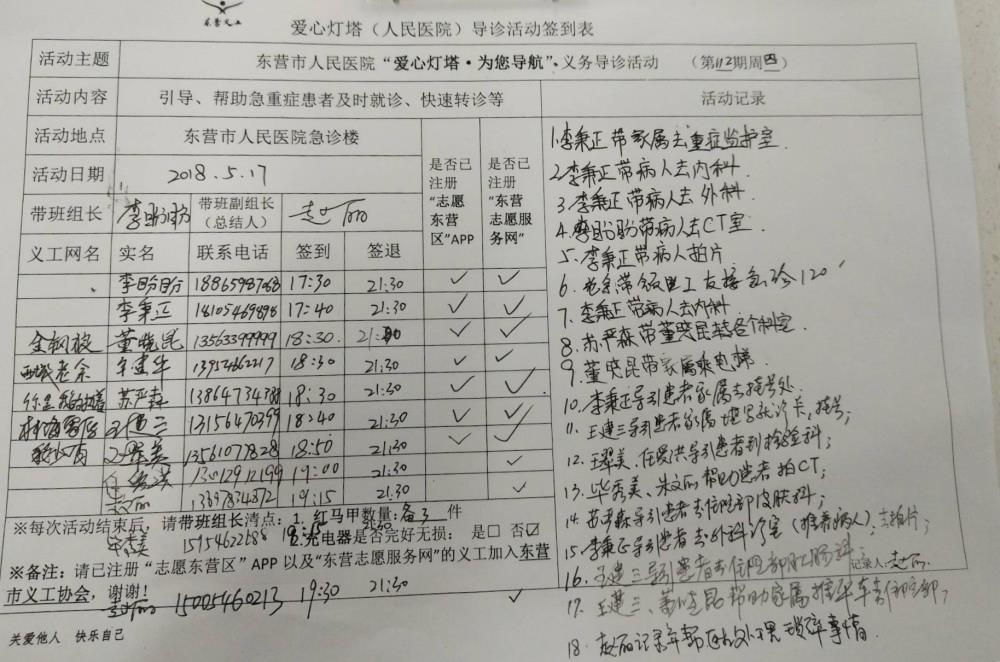 东营义工
爱心灯塔（人民医院）导诊活动签到表
活动主题 东营市人民医院“爱心灯塔·为您导航”·义务导诊活动 （第112期周四）
活动内容 引导、帮助急重症患者及时就诊、快速转诊等 活动记录
活动地点 东营市人民医院急诊楼
活动日期 2018.5.17
是否已注册“志愿东营区”APP
是否已注册“东营志愿服务网”
带班组长 李盼盼 带班副组长（总结人）
义工网名 实名 联系电话 签到 签退
李盼盼 17:30 21:30 ✓ ✓
李秉正 18105469898 17:40 21:30 ✓ ✓
董晓昆 13563399999 18:30 21:30 ✓ ✓
13954662217 18:30 21:30 ✓ ✓
苏严森 13864734788 18:30 21:30 ✓ ✓
王建三 13156470399 18:40 21:30 ✓ ✓
13561077828 18:50 21:30 ✓ ✓
19:00 21:30 ✓
19:15 21:30 ✓
※每次活动结束后，请带班组长清点：1、红马甲数量：备3件
2、充电器是否完好无损： 是□ 否☑
15954622688
※备注：请已注册“志愿东营区”APP以及“东营志愿服务网”的义工加入东营
市义工协会，谢谢！
15005460213 19:30 21:30 ✓
关爱他人 快乐自己
1.李秉正带家属去重症监护室.
2.李秉正带病人去内科.
3.李秉正带病人去外科.
4.李盼盼带病人去CT室.
5.李秉正带病人拍片
6. 120
7.李秉正带病人去内科
8.苏严森带董晓昆转各个科室.
9.董晓昆带家属乘电梯.
10.李秉正导引患者家属去挂号处
11.王建三导引患者家属填写就诊卡,挂号;
12.王翠美、任爱洪导引患者到检验科;
13.毕秀美、朱文 帮助患者拍CT;
14.苏严森导引患者去住院部皮肤科;
15.李秉正导引患者去外科诊室(推着病人),去拍片;
16.王建三导引患者去住院部肛肠科
记录人:
17.王建三、董晓昆帮助家属推平车去住院部;
18.